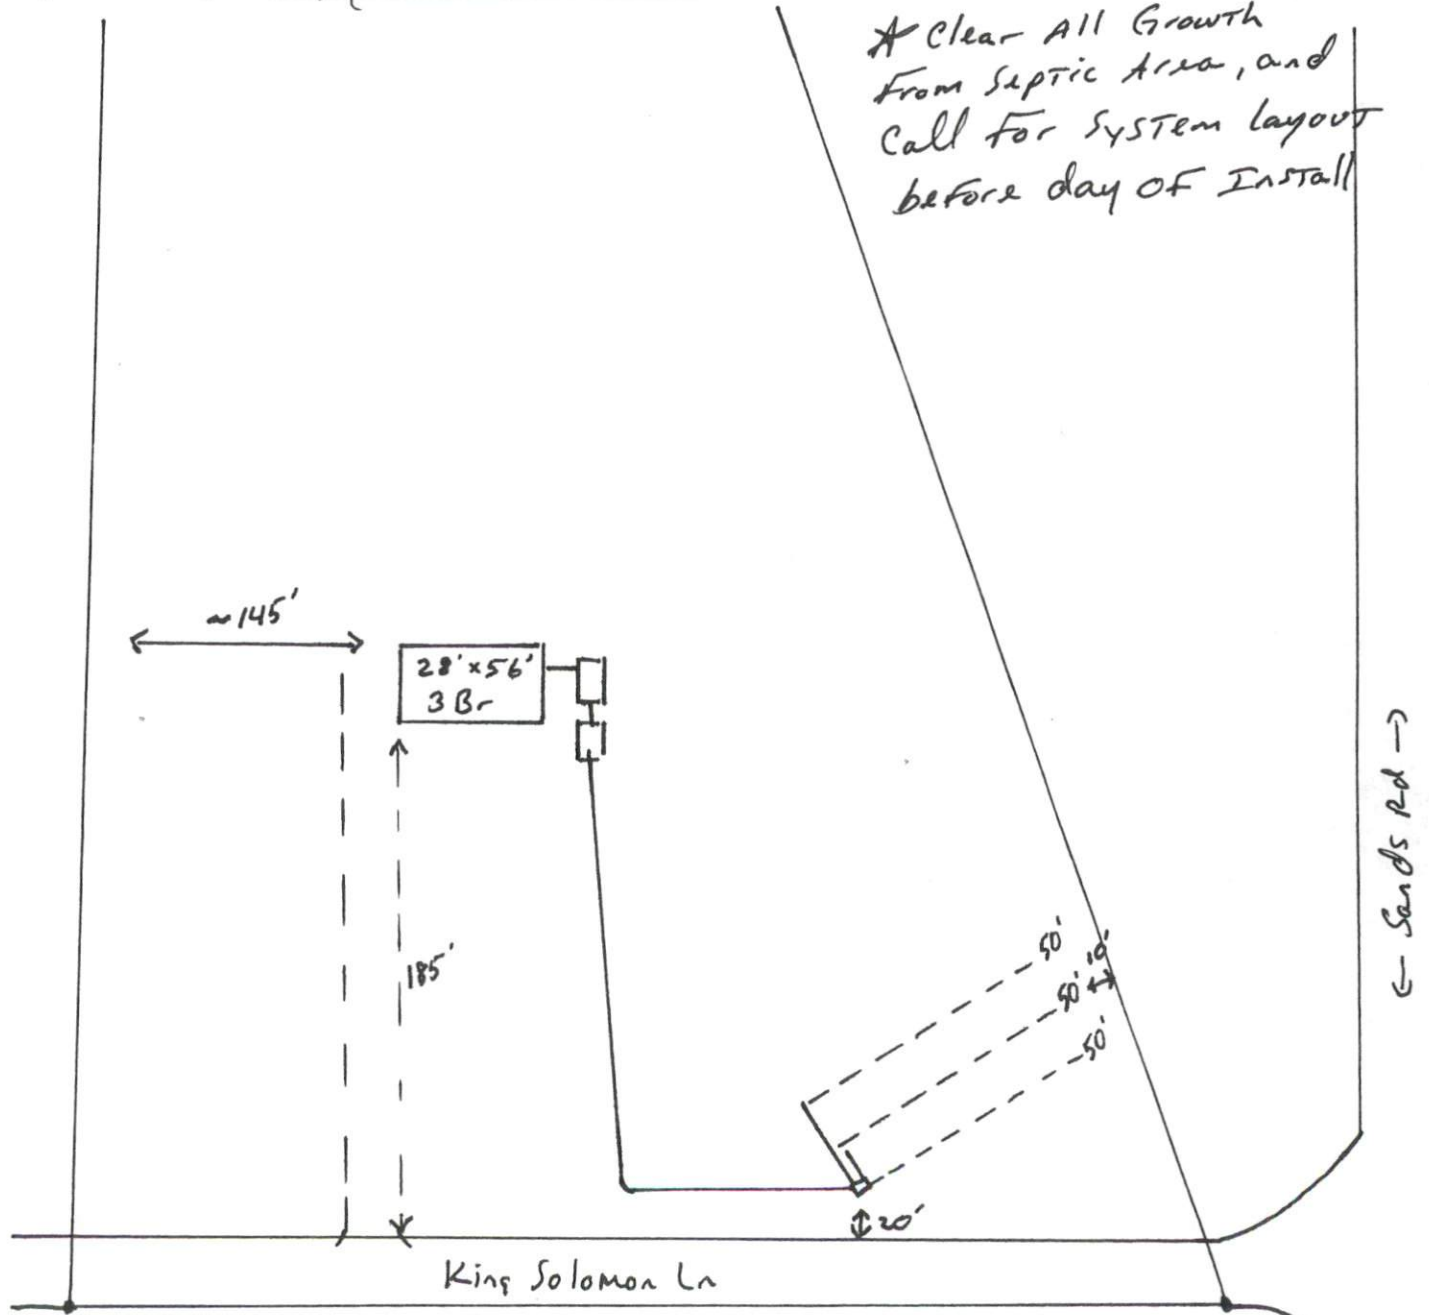 * Clear All Growth
From Septic Area, and
Call For System layout
before day OF Install
~145'
28' x 56'
3 Br
185'
50'
10'
50'
50'
20'
← Sands Rd →
King Solomon Ln